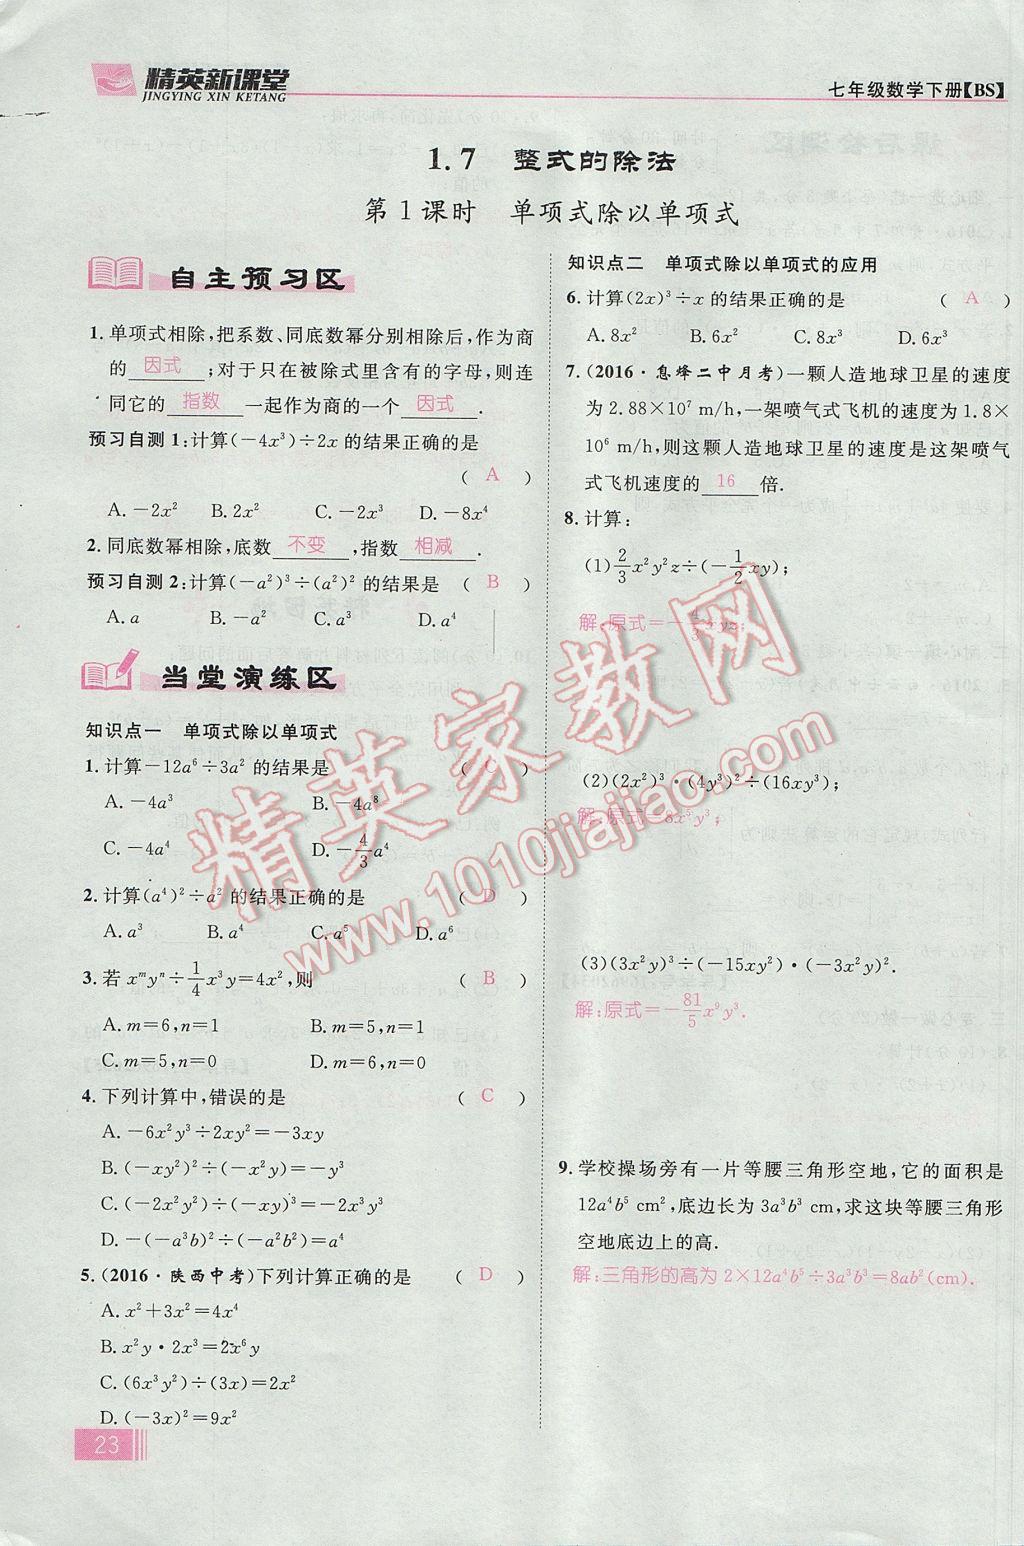 精英新课堂
JINGYING XIN KETANG
七年级数学下册【BS】
1.7 整式的除法
第1课时 单项式除以单项式
自主预习区
1. 单项式相除,把系数、同底数幂分别相除后,作为商
的 因式 ;对于只在被除式里含有的字母,则连
同它的 指数 一起作为商的一个 因式 .
预习自测1:计算(-4x³)÷2x的结果正确的是
( A )
A. -2x² B. 2x² C. -2x³ D. -8x⁴
2. 同底数幂相除,底数 不变 ,指数 相减 .
预习自测2:计算(-a²)³÷(a²)²的结果是 ( B )
A. a B. -a² C. a³ D. a⁴
当堂演练区
知识点一 单项式除以单项式
1. 计算-12a⁶÷3a²的结果是 ( C )
A. -4a³ B. -4a⁸
C. -4a⁴ D. -4/3 a⁴
2. 计算(a⁴)²÷a²的结果正确的是 ( D )
A. a³ B. a⁴ C. a⁵ D. a⁶
3. 若 xᵐyⁿ÷1/4 x³y=4x²,则 ( B )
A. m=6,n=1 B. m=5,n=1
C. m=6,n=0 D. m=5,n=0
4. 下列计算中,错误的是 ( C )
A. -6x²y³÷2xy²=-3xy
B. (-xy²)²÷(-x²y)=-y³
C. (-2x²y²)÷(-xy)³=-2x³y³
D. -(-a³b)²÷(-a²b²)=a⁴
5. (2016·陕西中考)下列计算正确的是 ( D )
A. x²+3x²=4x⁴
B. x²y·2x³=2x⁶y
C. (6x³y²)÷(3x)=2x²
D. (-3x)²=9x²
23
知识点二 单项式除以单项式的应用
6. 计算(2x)³÷x的结果正确的是 ( A )
A. 8x² B. 6x² C. 8x³ D. 6x³
7. (2016·息烽二中月考)一颗人造地球卫星的速度
为2.88×10⁷ m/h,一架喷气式飞机的速度为1.8×
10⁶ m/h,则这颗人造地球卫星的速度是这架喷气
式飞机速度的 16 倍.
8. 计算:
(1) 2/3 x²y²z÷(-1/2 xy);
解:原式=-4/3 xyz;
(2)(2x²)³·(4y³)²÷(16xy³);
解:原式=8x⁵y³;
(3)(3x²y)³÷(-15xy²)·(-9x⁴y²).
解:原式=-81/5 x⁹y³.
9. 学校操场旁有一片等腰三角形空地,它的面积是
12a⁴b⁵ cm²,底边长为3a³b³ cm,求这块等腰三角形
空地底边上的高.
解:三角形的高为2×12a⁴b⁵÷3a³b³=8ab²(cm).
精英家教网
www.1010jiajiao.com